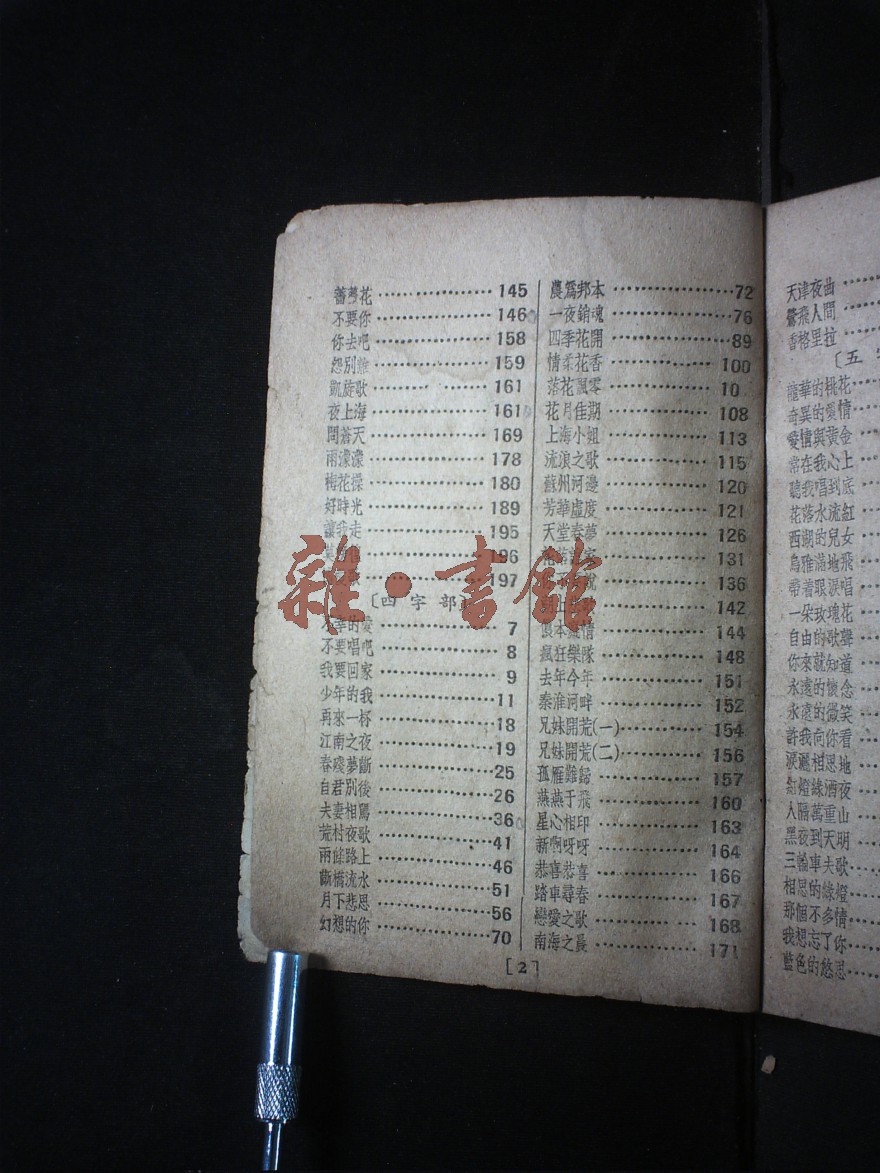 薔薇花 145
不要你 146
你去吧 158
怨別離 159
凱旋歌 161
夜上海 161
問蒼天 169
雨濛濛 178
梅花操 180
好時光 189
讓我走 195
196
197
〔四字部〕
不幸的愛 7
不要唱吧 8
我要回家 9
少年的我 11
再來一杯 18
江南之夜 19
春殘夢斷 25
自君別後 26
夫妻相罵 36
荒村夜歌 41
兩條路上 46
斷橋流水 51
月下悲思 56
幻想的你 70
農爲邦本 72
一夜銷魂 76
四季花開 89
情柔花香 100
落花飄零 10
花月佳期 108
上海小姐 113
流浪之歌 115
蘇州河邊 120
芳華虛度 121
天堂春夢 126
131
136
142
恨本癡情 144
瘋狂樂隊 148
去年今年 151
秦淮河畔 152
兄妹開荒(一) 154
兄妹開荒(二) 156
孤雁難歸 157
燕燕于飛 160
星心相印 163
新啊呀呀 164
恭喜恭喜 166
踏車尋春 167
戀愛之歌 168
南海之晨 171
[2]
天津夜曲
鶯飛人間
香格里拉
〔五字
龍華的桃花
奇異的愛情
愛情與黃金
常在我心上
聽我唱到底
花落水流紅
西湖的兒女
烏鴉滿地飛
帶着眼淚唱
一朵玫瑰花
自由的歌聲
你來就知道
永遠的懷念
永遠的微笑
許我向你看
淚灑相思地
紅燈綠酒夜
人隔萬重山
黑夜到天明
三輪車夫歌
相思的綠燈
那個不多情
我想忘了你
藍色的悠思
雜·書館